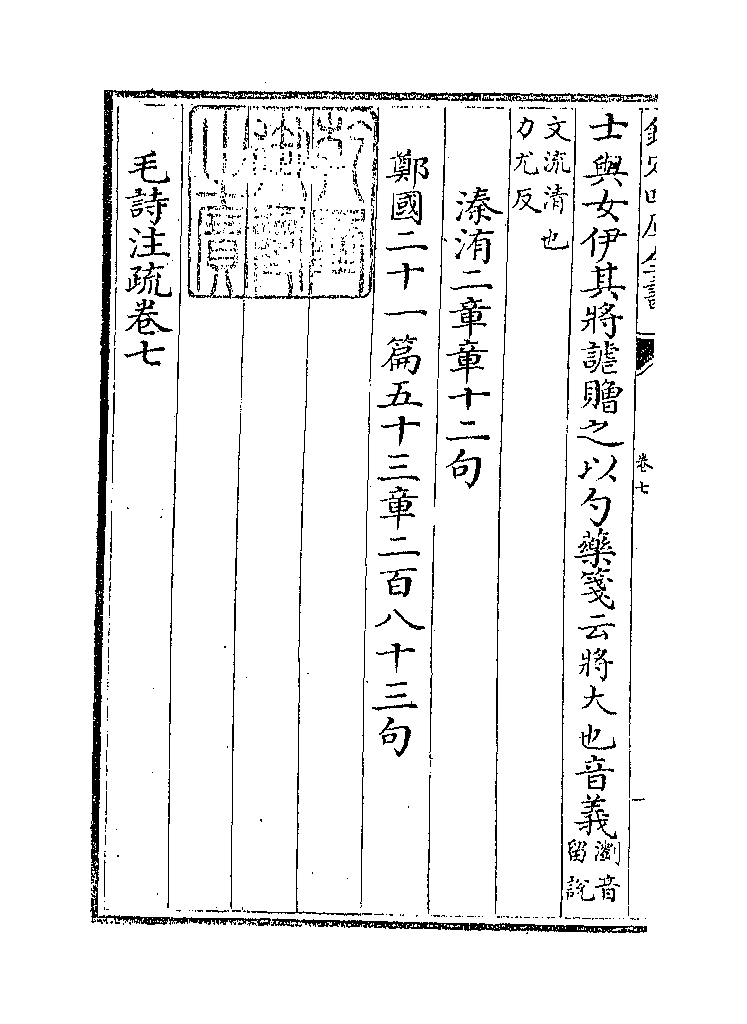 欽定四庫全書
卷七
士與女伊其將謔贈之以勺藥箋云將大也音義瀏音留說
文流清也力尤反
溱洧二章章十二句
鄭國二十一篇五十三章二百八十三句
乾隆御覽之寶
毛詩注疏卷七